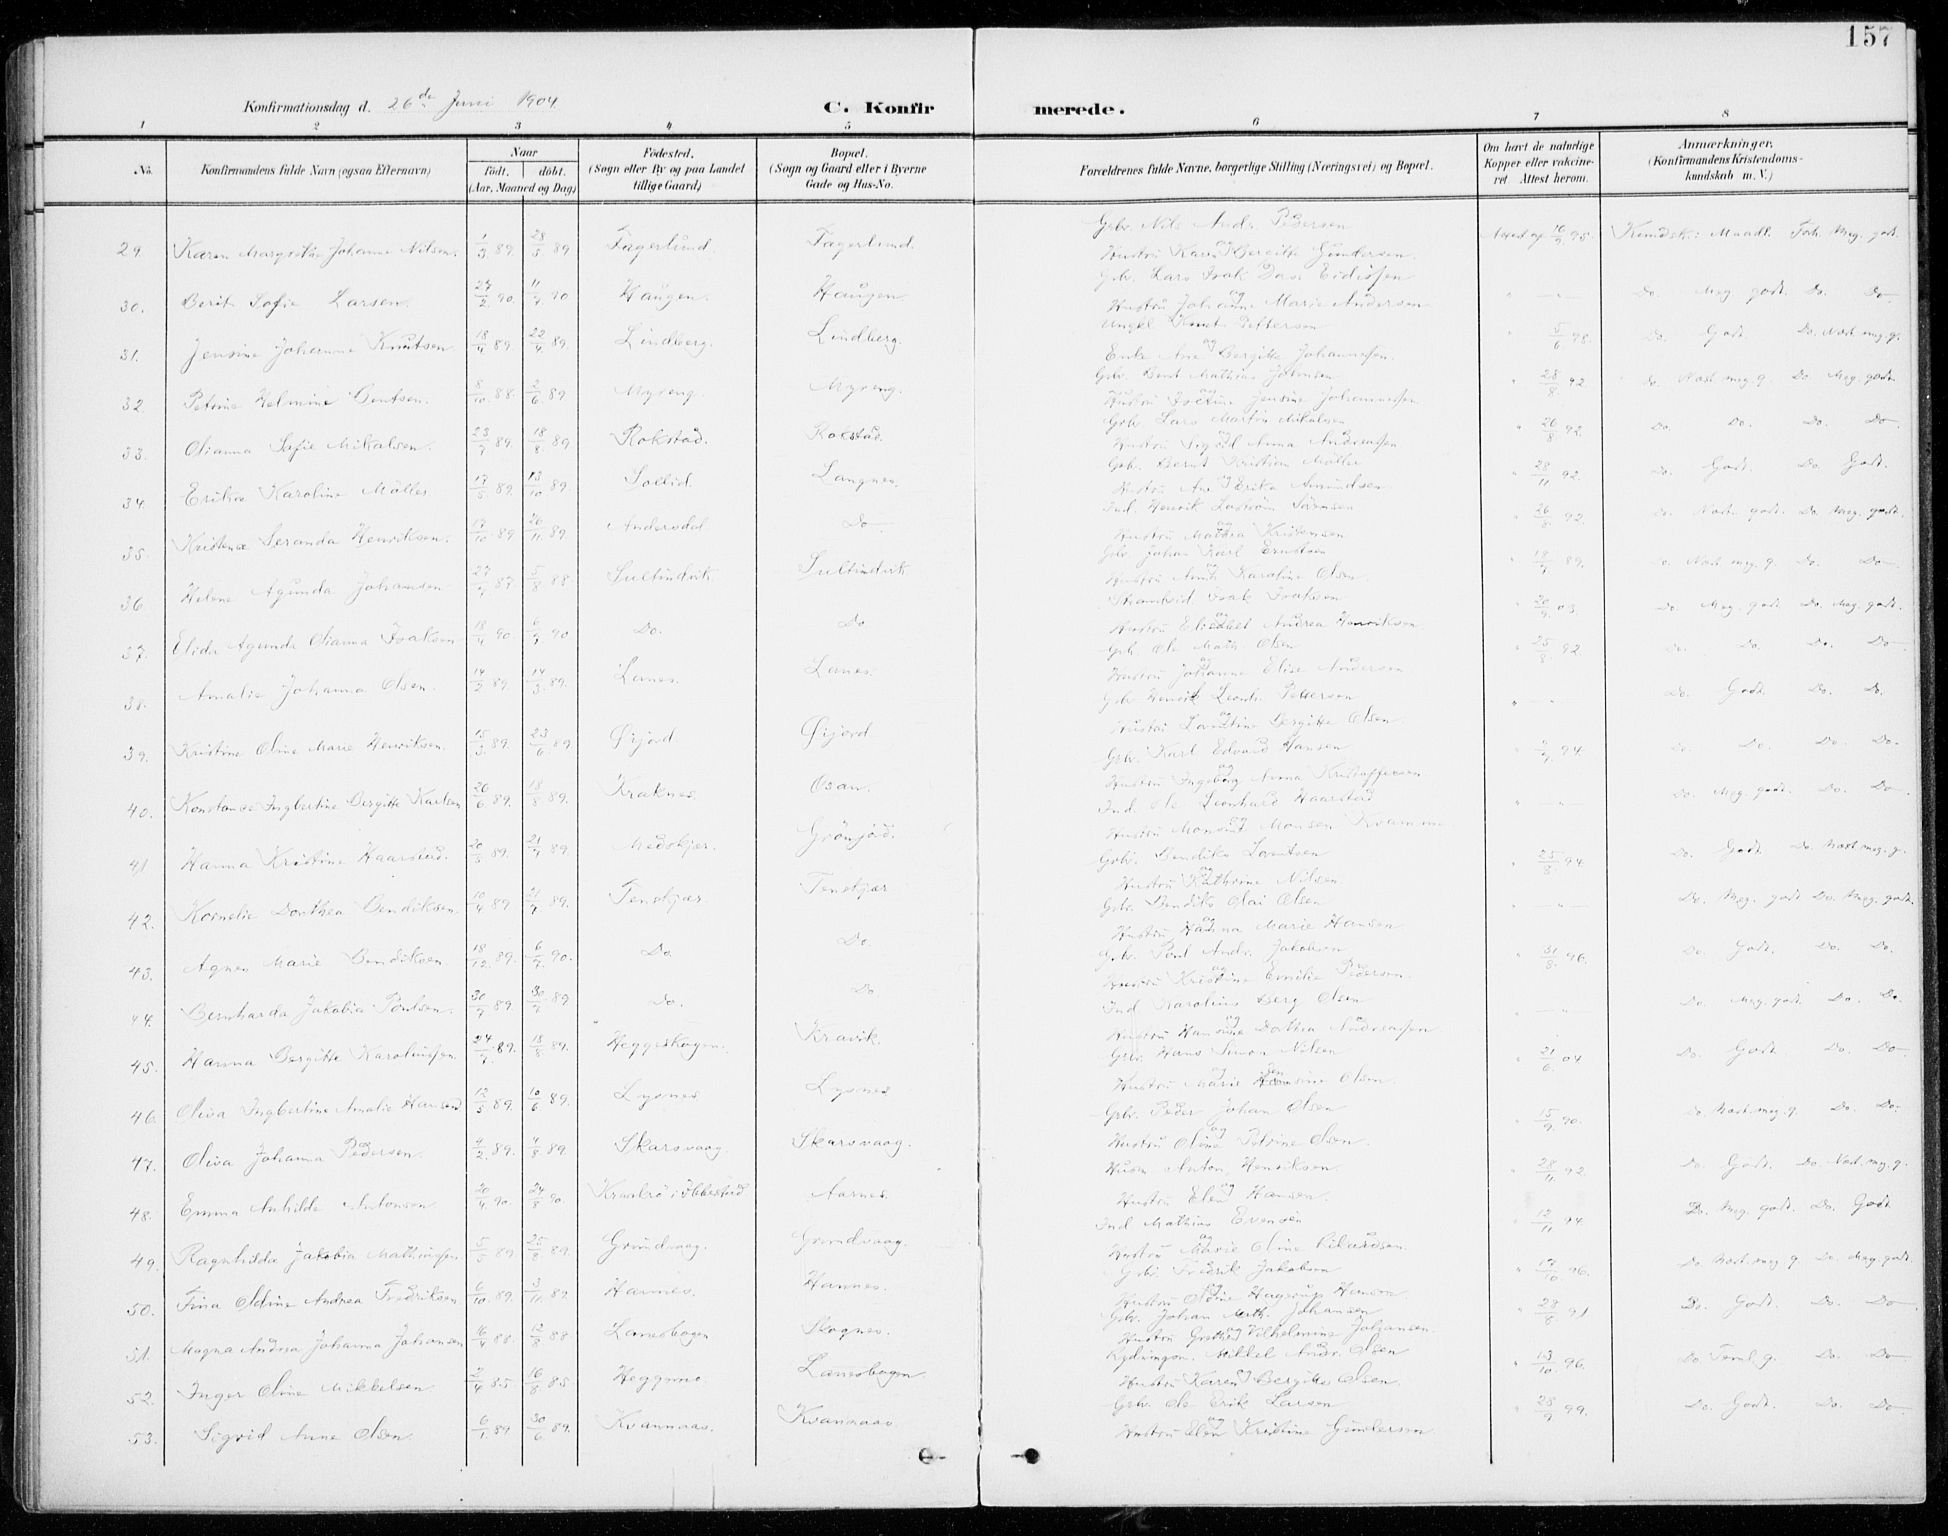 157
Konfirmationsdag d. 26de Juni 1904
C. Konfirmerede.
1 2 3 4 5 6 7 8
No. Konfirmandens fulde Navn (ogsaa Efternavn) Naar født. døbt. (Aar, Maaned og Dag) Fødested. (Sogn eller By og paa Landet tillige Gaard) Bopæl. (Sogn og Gaard eller i Byerne Gade og Hus-No. Forældrenes fulde Navne, borgerlige Stilling (Næringsvei) og Bopæl. Om havt de naturlige Kopper eller vakcineret. Attest herom. Anmærkninger. (Konfirmandens Kristendomskundskab m. V.)
29. Karen Margrethe Johanne Nilsen. 89 28/5 89 Fagerlund. Fagerlund. Gbr. Nils Andr. Pedersen og Hustru Karen Bergitte Gundersen. 95 Kundsk.: Maadl. Forh. Meg. godt.
30. Berit Sofie Larsen. 27/2 90. 90 Haugen. Haugen. Gbr. Lars Isak Eidissen og Hustru Johanne Marie Andersen " — " — Do. Meg. godt. Do. Do
31. Jensine Johanne Knutsen 18/4 89. 22/4 89. Lindberg. Lindberg. Ungkl. Knut Pettersen og Enke Ane Bergitte Johannessen. " 5/6 98 Do. Godt. Do. Næst meg. g.
32. Petrine Helmine Bentsen. 8/10 88. 2/6 89 Myreng Myreng. Gbr. Bent Mathias Johnsen og Hustru Jensine Johannessen " 28/8 92 Do. Næst meg. g. Do. Meg. godt.
33. Olianna Sofie Mikalsen. 23/7 89. 18/8 89 Rokstad. Rokstad. Gbr. Lars Martin Mikalsen og Hustru Anna Andreassen " 26/8 92. Do. Do. Do. Do
34. Erika Karoline Möller 17/5 89. 13/10 89. Sollid. Langnes. Gbr. Bernt Kristian Möller og Hustru Ane Erika Amundsen " 28/11 92. Do. Godt. Do. Godt.
35. Kristence Seranda Henriksen. 17/10 89 26/11 89 Andersdal Do Ind. Henrik Sörensen og Hustru Mathea Kristensen " 26/8 92. Do. Næst. godt. Do. Meg. godt.
36. Helene Agunda Johansen 27/7 87 5/8 88 Sultindvik. Sultindvik Gbr. Johan Karl Berntsen og Hustru Anne Karoline Olsen. " 89. Do. Næst meg. g. Do. Do
37. Elida Agunda Olianna Isaksen 18/4 90. 90 Do. Do Isak Isaksen og Hustru Elisabet Andrea Henriksen " 03. Do. Meg. godt. Do. Meg. godt.
38. Amalie Johanna Olsen. 14/2 89. 14/3 89. Lanes. Lanes. Gbr. Ole Math. Olsen og Hustru Johanne Elise Andersen " 25/8 92 Do. Do. Do. Do
39. Kristine Oline Marie Henriksen. 15/3 89. 23/6 89. Øijord Øijord Gbr. Henrik Leonh. Pettersen og Hustru Bergitte Olsen. " — " — Do. Godt. Do. Do.
40. Konstanse Ingbertine Bergitte Karlsen 26/6 89. 18/8 89. Kraknes. Osan. Gbr. Karl Edvard Hansen og Hustru Ingeborg Anna Kristoffersen " 94. Do. Do. Do. Do.
41. Hanna Kristine Haarstad. 89. 89. Medskjær. Grönjord. Ind. Ole Leonhard Haarstad og Hustru Monsine Monsen Kvamme " — " — Do. Meg. godt. Do. Do
42. Kornelie Dorthea Bendiksen. 10/4 89 21/7 89. Tenskjær. Tenskjær Gbr. Bendiks Lorentsen og Hustru Kathrine Nilsen. " 25/8 94 Do. Godt. Do. Næst meg. g.
43. Agnes Marie Bendiksen 18/12 89. 90. Do. Do. Gbr. Bendiks Olai Olsen og Hustru Hanna Marie Hansen. " — " — Do. Meg. godt Do. Meg. godt.
44. Bernharda Jakobia Poulsen. 89. 89 Do. Do Gbr. Poul Andr. Jakobsen og Hustru Kristine Emilie Pedersen. " 31/8 96. Do. Godt. Do. Do.
45. Hanna Bergitte Karolinussen. 24/7 89. 18/8 89. Heggeskogen. Kravik. Ind. Karolius Berg Olsen og Hustru Hansine Dorthea Andreassen " — " — Do. Meg. godt Do. Do.
46. Oliva Ingbertine Amalie Hansen 12/3 89. 10/6 89. Lysnes Lysnes Gbr. Hans Simon Nilsen og Hustru Marie Olsen. " 21/6 04 Do. Godt. Do. Do
47. Oliva Johanna Pedersen. 89. 89 Skarsvaag. Skarsvaag. Gbr. Peder Johan Olsen og Hustru Oline Petrine Olsen. " 15/9 90. Do. Næst meg. g. Do. Do.
48. Emma Anhilde Antonsen 20/4 90. 24/8 90. i Ibbestad Aarnes. Husm. Anton Henriksen. og Hustru Elen Hansen. " 92 Do. Godt. Do. Næst meg. g.
49. Ragnhilda Jakobia Mathiassen 89 25/8 89. Grundvaag. Grundvaag. Ind. Mathias Evensen og Hustru Marie Oline Rikardsen. " 12/11 94 Do. Meg. godt. Do. Godt
50. Fina Oldine Andrea Fredriksen 6/10 89. 3/11 89. Hannes. Hannes. Gbr. Fredrik Jakobsen og Hustru Oldine Hagerup Hanson " 17/10 96. Do. Næst meg. g. Do. Meg. godt.
51. Magna Andrea Johanna Johansen 88. 12/8 88 Lanesbogen Skognes. Gbr. Johan Math. Johansen og Hustru Grethe Vilhelmine Johansen. " 91 Do. Godt. Do. Do
52. Inger Oline Mikkelsen. 2/4 85 16/8 85 Heggemo. Lanesbogen. Rydningsm. Mikkel Andr. Olsen og Hustru Karen Bergitte Olsen. " 13/10 96. Do. Teml. g. Do. Do
53. Sigrid Anne Olsen. 6/1 89 30/6 89. Kvannaas. Kvannaas. Gbr. Ole Erik Larsen og Hustru Elen Kristine Gundersen " 28/9 99. Do. Godt. Do. Do